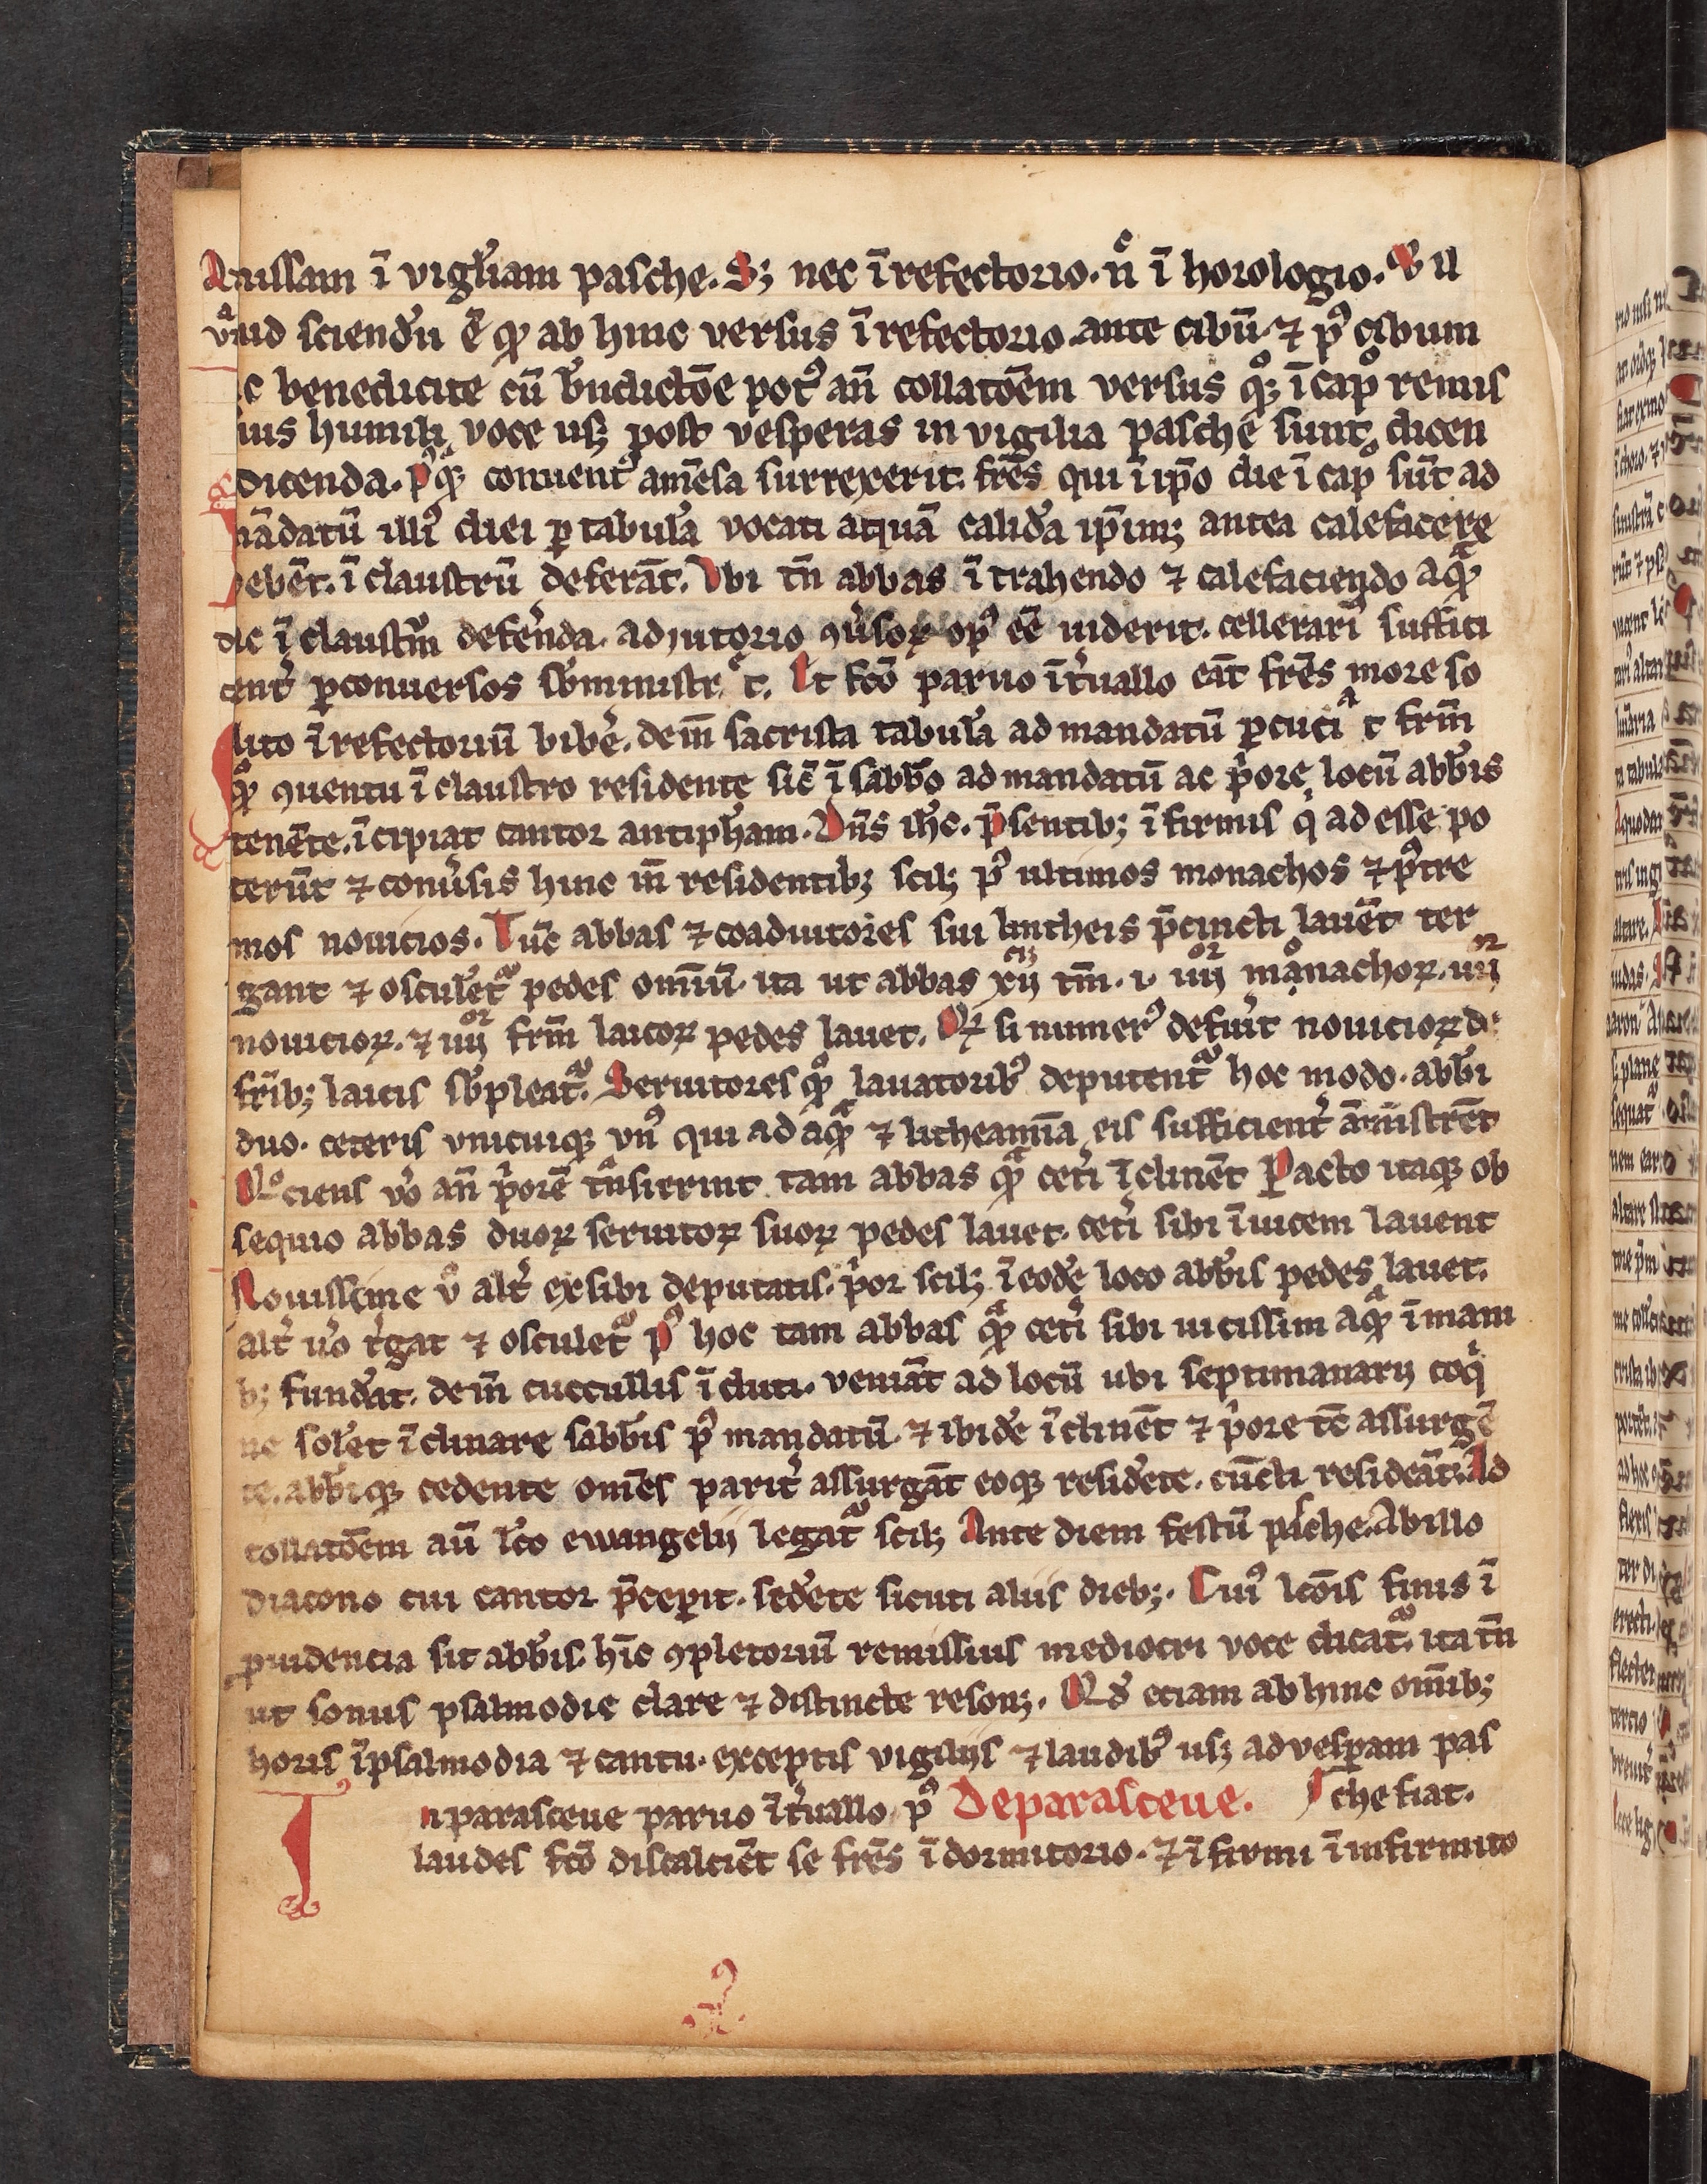 missam ī vigl̄iam pasche. Sꝫ nec ī refectorio. nͨ ī horologio. Vͤ il
lud sciend̄u ē qͦ ab hinc versus ī refectorio ante cibū ⁊ pꝰ cibum
benedicite cū b̄ndictōe potꝰ an̄ collatōem versus qͦꝫ ī capͦ remis
sius humili voce usꝫ post vesperas in vigilia pasche sunt dicen
dicenda. pꝰqͣꝫ conuentꝰ amēsa surrexerit. fr̄es qui ī ip̄o die ī capͦ sūt ad
mādatū illiꝰ diei ꝑ tabul̄a vocati aquā calid̄a ip̄imꝫ antea calefacere
debēt. ī claustrū deferāt. Vbi tn̄ abbas ī trahendo ⁊ calefaciendo aqͣ
ī claustrū defer̄enda adiutorio ꝯuersoꝝ opꝰ eē uiderit. cellerariꝰ suffici
ent̄ ꝑ conuersos sb̄ministrͤt. Et fc̄o paruo īt̄uallo eāt fr̄es more so
lito ī refectoriū biber̄e. dein̄ sacrista tabul̄a ad mandatū ꝑcuciͣt frm̄
qͣ ꝯuentu ī claustro residente sic̄ ī sabb̄o ad mandatū ac p̄ore locū abb̄is
tenēte. ī cipiat cantor antiph̄am. Dn̄s ih̄c. p̄sentibꝫ ī firmis qͥ ad esse po
terūt ⁊ conūsis hinc in̄ residentibꝫ scilꝫ pꝰ ultimos monachos ⁊ pꝰtre
mos nouicios. Tūc abbas ⁊ coadiutores sui lintheis p̄cincti lauēt ter
gant ⁊ osculēt᷑ pedes omīu. ita ut abbas xij tm̄. i. iiij moͦnachoꝝ. iiij
nouicioꝝ. ⁊ iiij frm̄ laicoꝝ pedes lauet. Qꝫ si numerꝰ defūit nouicioꝝ d
fr̄ibꝫ laicis sb̄pleat᷑. Seruitores qͦꝫ lauatoribꝰ deputent᷑ hoc modo. abb̄i
duo. ceteris vnicuiqꝫ vnꝰ qui ad aqͣ ⁊ litheamīa eis sufficient̄ am̄istrēt
Qͦciens v̄o an̄ p̄orē tͣnsierint tam abbas qͣ cet̄i ī clinēt Pacto itaqꝫ ob
sequio abbas duoꝝ seruitoꝝ suoꝝ pedes lauet. cet̄i sibi īuicem lauent
Nouissime vͦ alt̄ ex sibi deputatis. p̄or scilꝫ ī eod̄e loco abb̄is pedes lauet.
alt̄ ūo t̄gat ⁊ osculet᷑ pꝰ hoc tam abbas qͣ cet̄i sibi uicissim aqͣ ī mani
bꝫ fund̄at. dein̄ cuccullis ī duti. veniāt ad locū ubi septimanarij coqͥ
ne sol̄et ī clinare sabb̄is pꝰ mandatū. ⁊ ibid̄e ī clinēt ⁊ p̄ore tc̄ assurgē
te. abb̄iqꝫ cedente om̄es parit̄ assurgāt eoqꝫ resid̄ete. cūcti resideāt. Ad
collatōem aū l̄co ewangelij legat᷑ scilꝫ Ante diem festū pasche. Ab illo
diacono cui cantor p̄ceꝑit. sed̄ete sicuti aliis diebꝫ. Cuiꝰ lcōis finis ī
ꝓuidencia sit abb̄is. hīc ꝯpletoriū remissius mediocri voce dicat᷑. ita tn̄
ut sonus psalmodie clare ⁊ distincte resonꝫ. Qd̄ eciam ab hinc om̄ibꝫ
horis ī psalmodia ⁊ cantu. exceptis vigilijs ⁊ laudibꝰ usꝫ ad vesꝑam pas
In parasceue paruo īt̄uallo pꝰ De parasceue. che fiat.
laudes fc̄o discalciēt se fr̄es ī dormitorio. ⁊ ī firmi ī infirmito